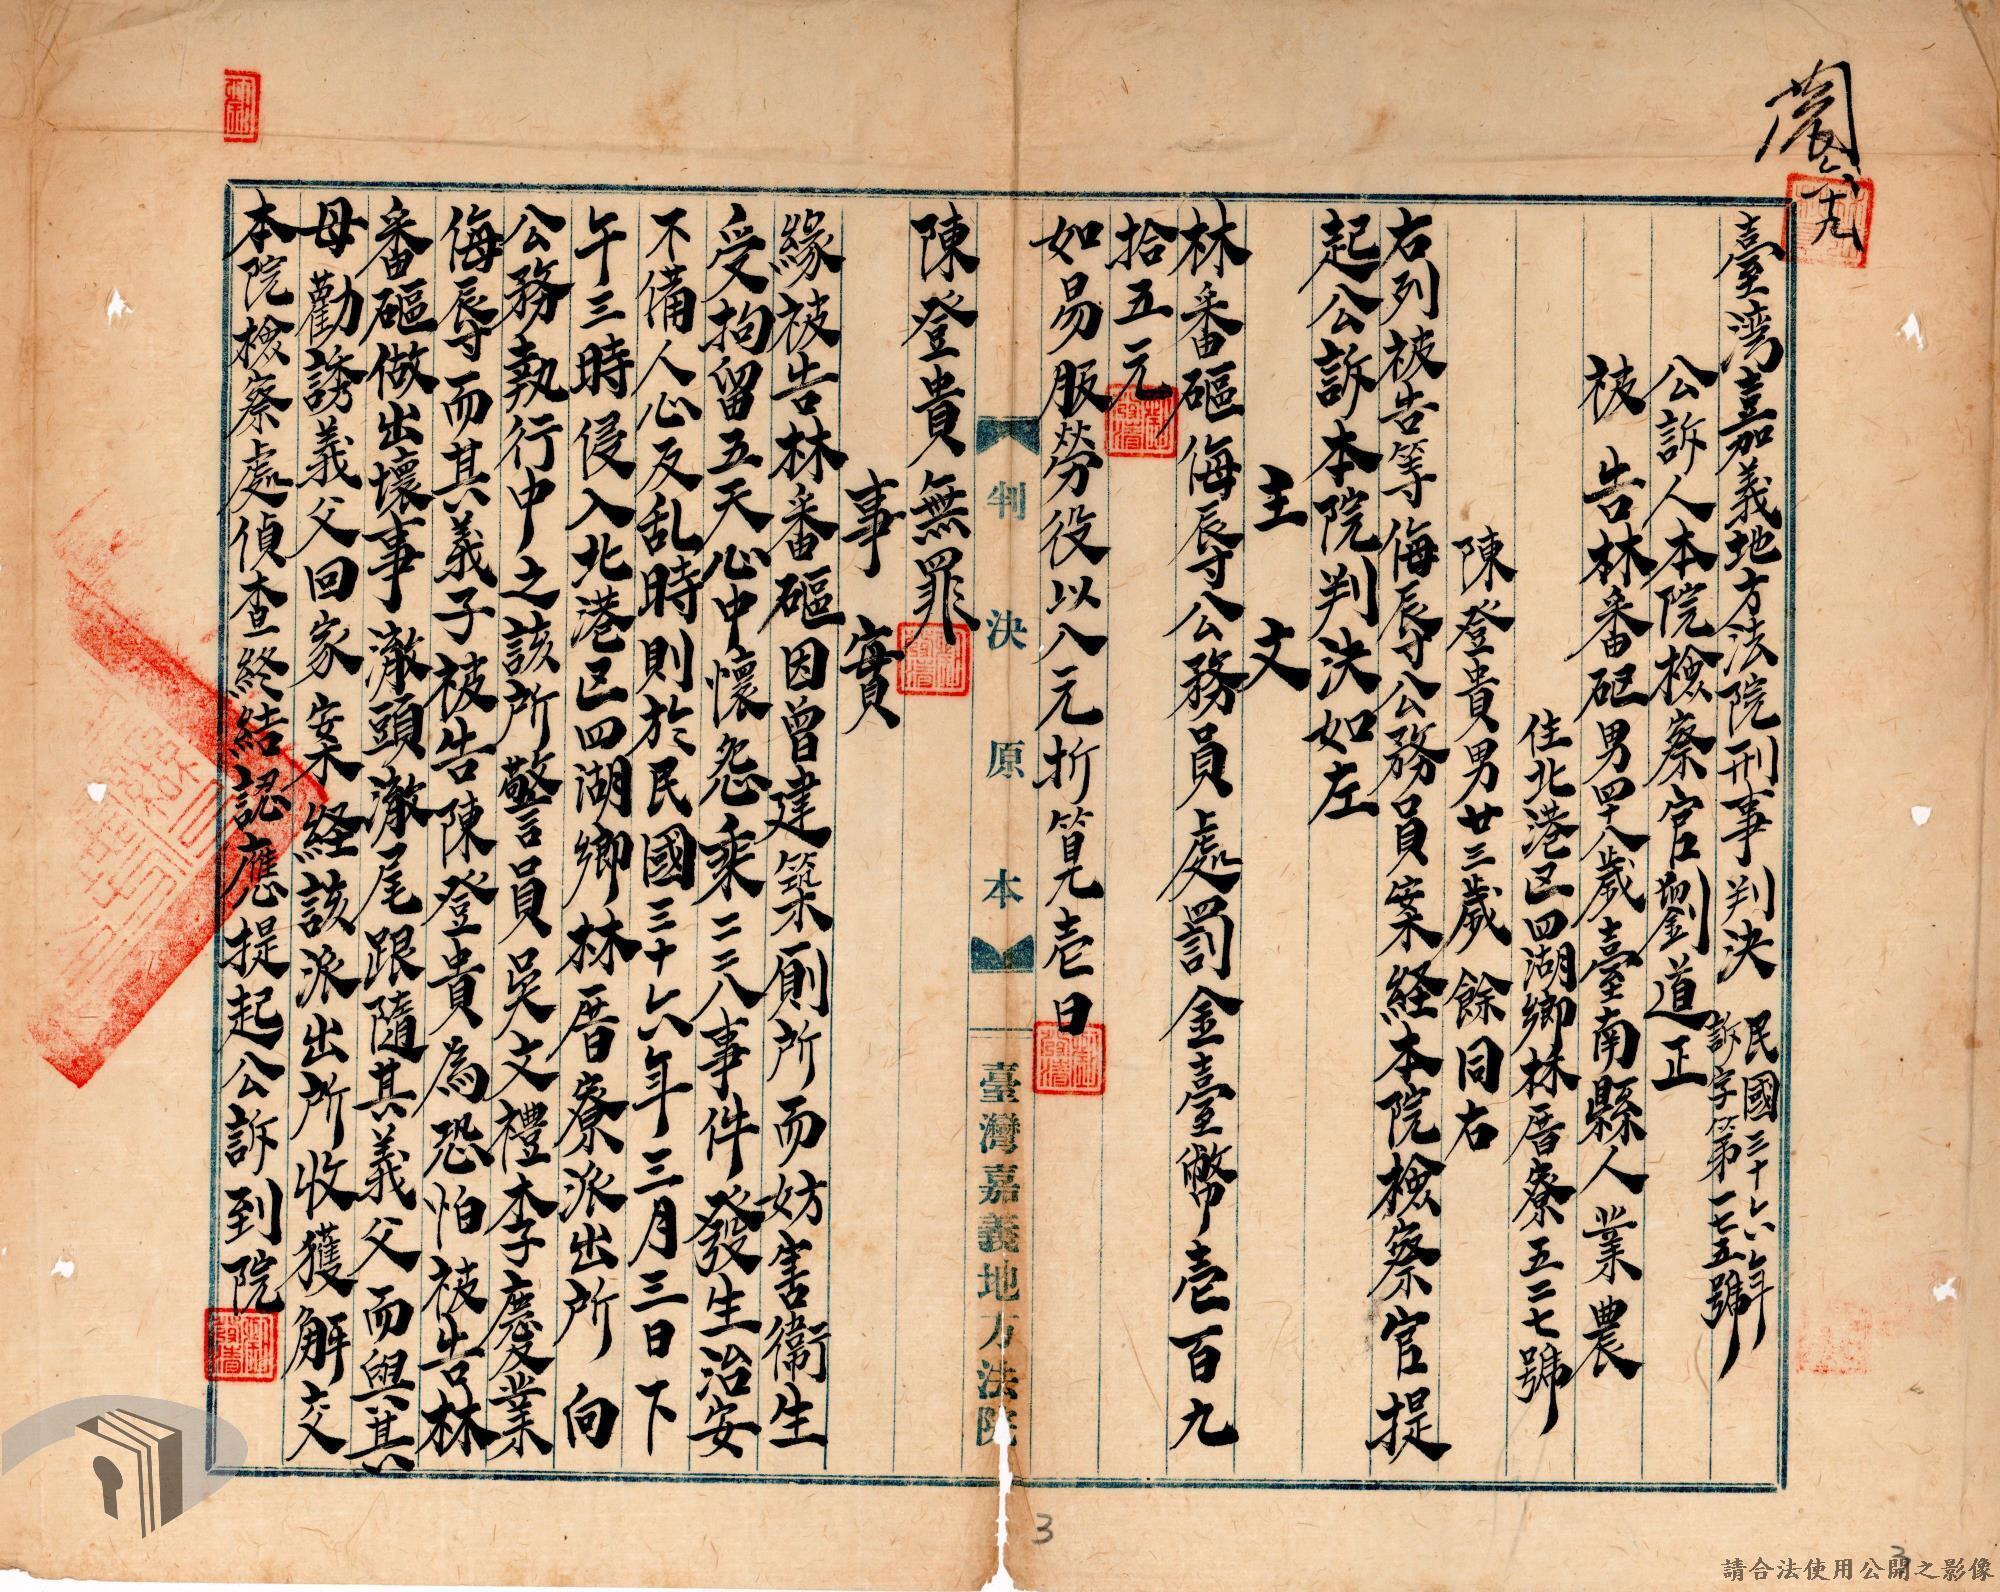 臺灣嘉義地方法院刑事判決
民國三十六年
訴字第一七五號
公訴人本院檢察官劉道正
被告林番𥐻男四十八歲臺南縣人業農
住北港区四湖鄉林厝寮五二七號
陳登貴男廿三歲餘同右
右列被告等侮辱公務員案経本院檢察官提
起公訴本院判決如左
主文
林番𥐻侮辱公務員處罰金臺幣壱百九
拾五元
如易服勞役以八元折算壱日
陳登貴無罪
事實
緣被告林番𥐻因曾建築厠所而妨害衛生
受拘留五天心中懷怨乘二二八事件發生治安
不備人心反乱時則於民國三十六年三月三日下
午三時侵入北港区四湖鄉林厝寮派出所向
公務執行中之該所警員吳文禮李慶業
侮辱而其義子被告陳登貴為恐怕被告林
番𥐻做出壞事澈頭澈尾跟隨其義父而與其
母勸誘義父回家案経該派出所收獲解交
本院檢察處偵查終結認應提起公訴到院
判決原本
臺灣嘉義地方法院
3
3
請合法使用公開之影像